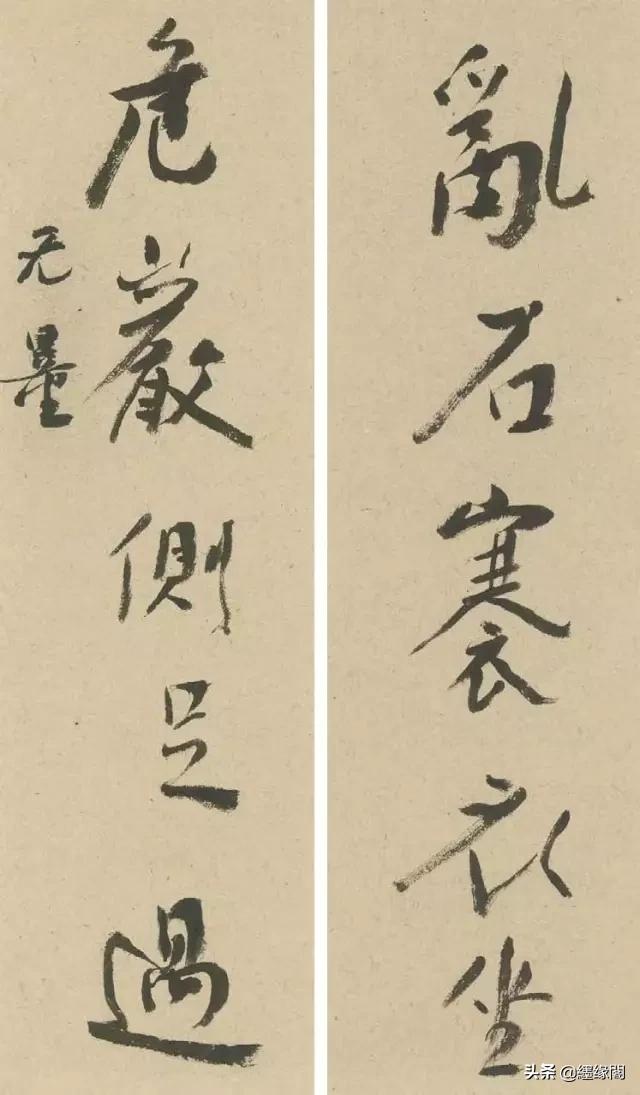 亂石褰衣坐
危嚴側足過
无量
头条 @纆缘閣